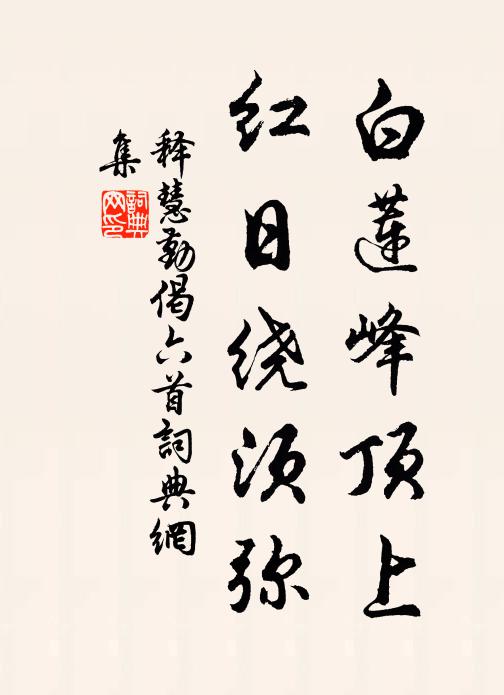 白蓮峰顶上
红日绕须弥
释慧勤偈六首詞典網
集
詞典网印